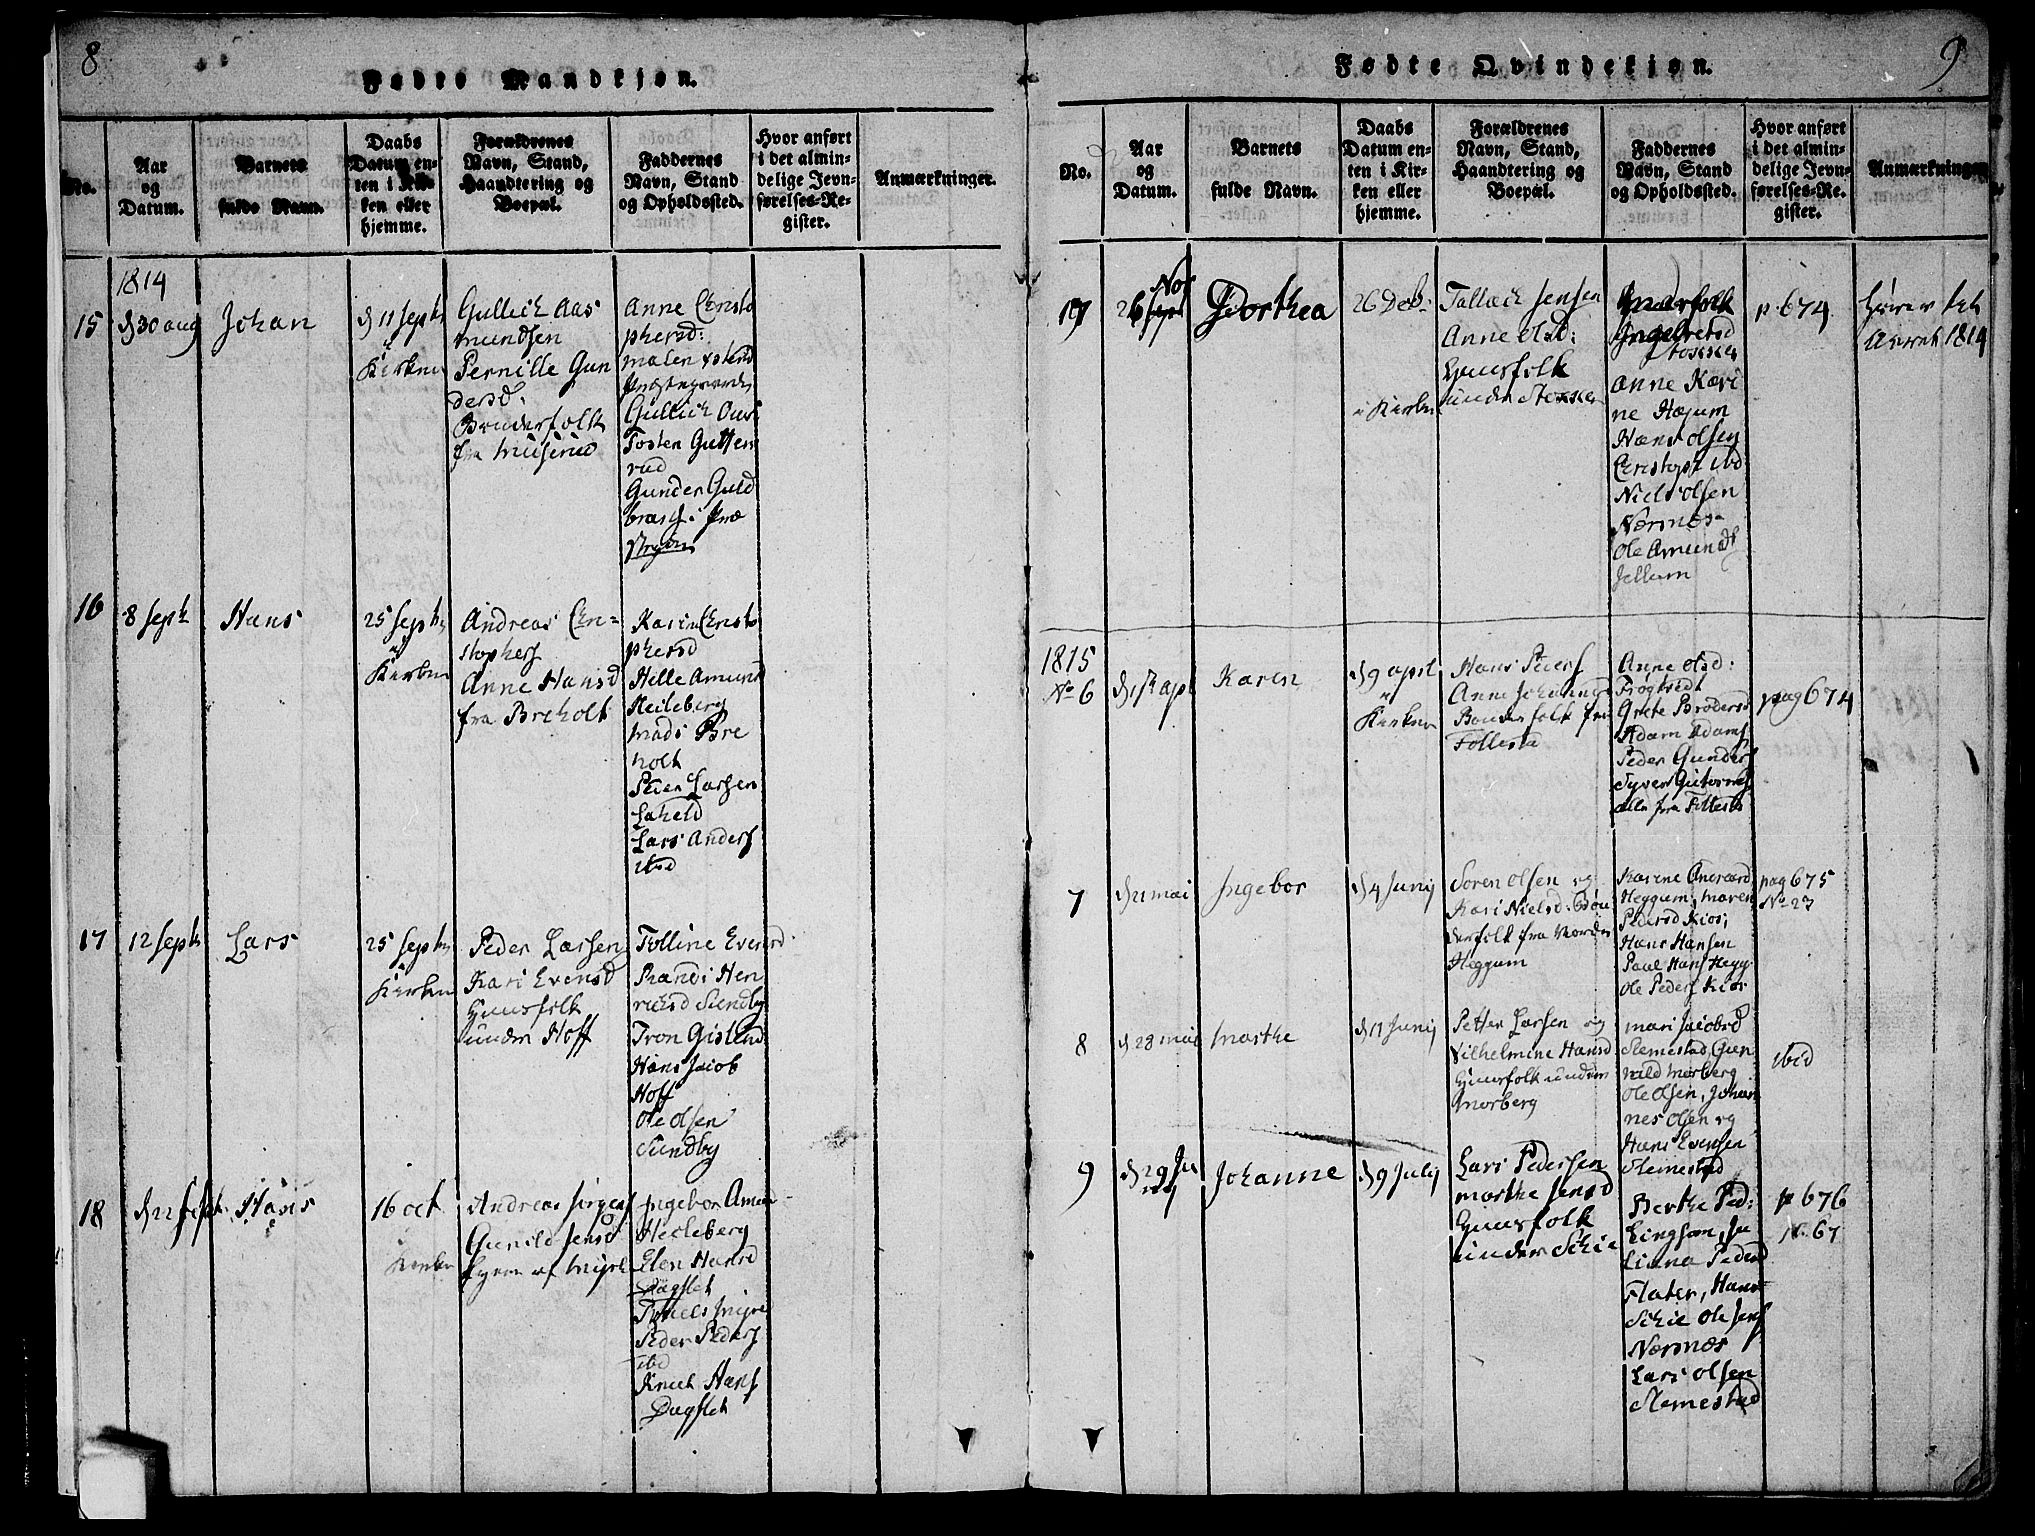 8
Fødte Mandkjøn.
No.
Aar
og
Datum.
Barnets
fulde Navn.
Daabs
Datum en-
ten i Kir-
ken eller
hjemme.
Forældrenes
Navn, Stand,
Haandtering og
Boepæl.
Faddernes
Navn, Stand
og Opholdssted.
Hvor anført
i det almin-
delige Jevn-
førelses-Re-
gister.
Anmærkninger.
1814
15
d 30 aug
Johan
d 11 Septr
i
Kirken
Gullich Aas
mundsen
Pernille Gun
dersd.
Bønderfolk
fra
Anne Christo
phersd:
Gullich
Tosten Gutten
rud
Gunder Guld
brans. i Præ
16
8 Septr
Hans
25 Septr
i
Kirken
Andreas Chri-
stophers
Anne Hansd
fra Breholt
Karen Christo
phersd
Helle Amund
Heileberg
Mads Bre
holt
Peder Larsen
Laheld
Lars Anders
ibid
17
12 Septr
Lars
25 Septr
i
Kirken
Peder Larsen
Kari Evensd
Huusfolk
under Hoff
Tolline Evensd.
Randi Hen
richsd Sundby
Tron Gislend
Hans Jacob
Hoff
Ole Olsen
Sundby
18
d 22 Septr.
Hans
16 oct
Kirken
Andreas Jørgens
Gunild Jensd
Ingebor Amun
Heileberg
Elen Hansd
Dagslet
Peder Peders
ibid
Knut Hans
Dagslet
9
Fødte Qvindekjøn.
No.
Aar
og
Datum.
Barnets
fulde Navn.
Daabs
Datum en-
ten i Kir-
ken eller
hjemme.
Forældrenes
Navn, Stand,
Haandtering og
Boepæl.
Faddernes
Navn, Stand
og Opholdssted.
Hvor anført
i det almin-
delige Jevn-
førelses-Re-
gister.
Anmærkninger
19
Nov
26
Dorthea
26 Deb.
i Kirken
Tallach Jensen
Anne Olsd:
Huusfolk
under Stokker
Stokker
Anne Kari
ne Hægum
Hans Olsen
Christoph ibd
Niels Olsen
Nærsnæs
Ole Amunds
Jellum
p 674
hører til
Aaret 1814
1815
No 6
d 1ste apl
Karen
d 9 april
i
Kirken
Hans Peders
Anne Johannesd
Bønderfolk fra
Follestad
Anne Olsd:
Frøgtvedt
Grete Brødersd
Adam Adams
Peder Gunders
Syver Gutorms
alle fra Follestad
pag 674
7
d 21 mai
Ingebor
d 4 Junij
Søren Olsen og
Kari Nielsd. Bøn
derfolk fra Nordre
Heggum
Karine Andreasd
Heggum, Maren
Pedersd Kios,
Hans Hansen
Paul Hans Hegg.
Ole Peders Kios
pag 675
No 27
8
d 28 mai
Marthe
d 11 Junij
Petter Larsen og
Vilhelmine Hansd
Huusfolk under
Morberg
Mari Jacobsd
Slemestad, Gun
nild Morberg
Ole Olsen, Johan
nes Olsen og
Hans Evensen
Slemestad
ibid
9
d 29 Ju
nij
Johanne
d 9 July
Lars Pedersen
Marthe Jensd
Huusfolk
under Schie
Berthe Ped:
Lingsom, Ju
liana Pedersd
Flaten, Hans
Schie Ole Jens
Nærsnæs
Lars Olsen
Slemestad
p 676
No. 67